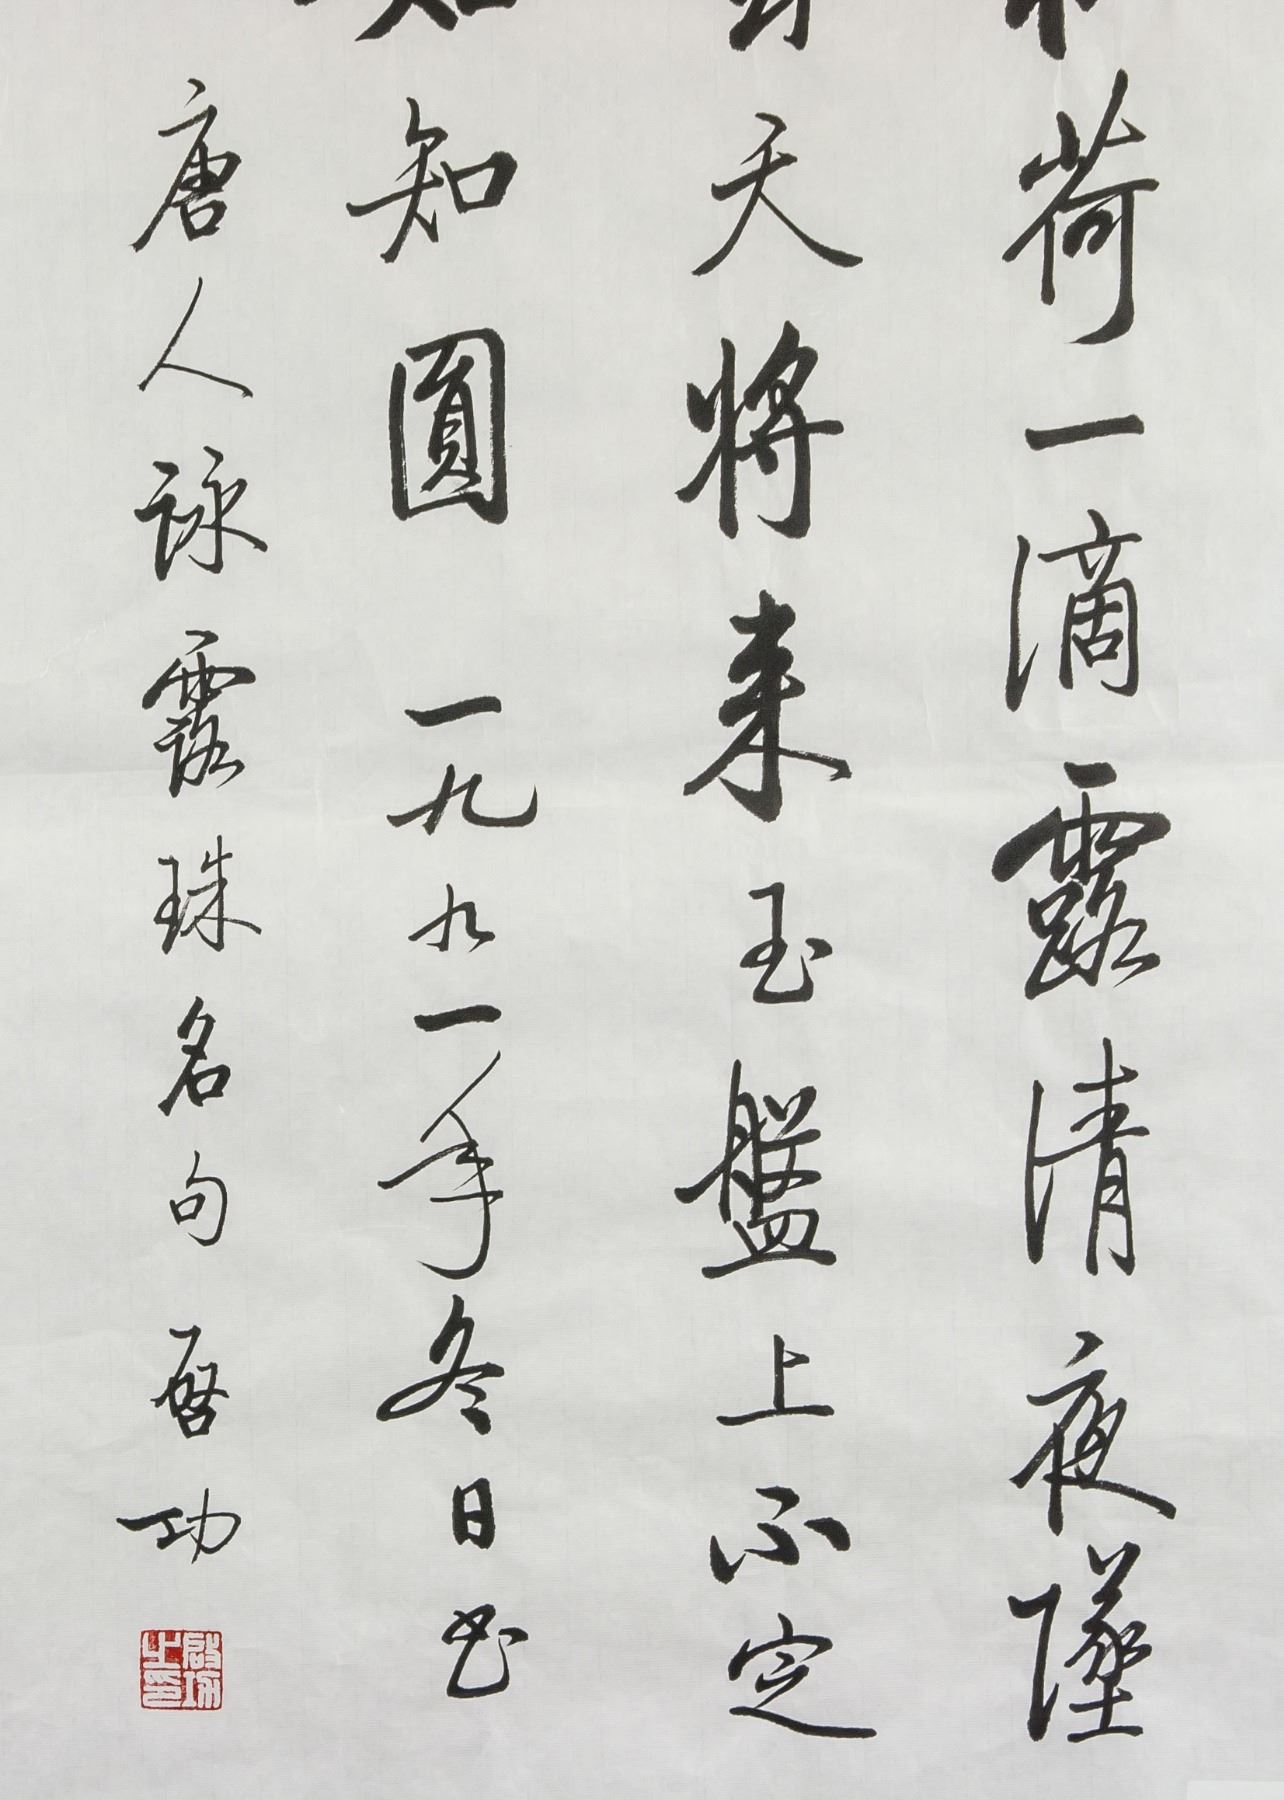 荷一滴露清夜墜
天將来玉盤上不定
知圓 一九九一年冬日书
唐人詠露珠名句 启功
啟功之印